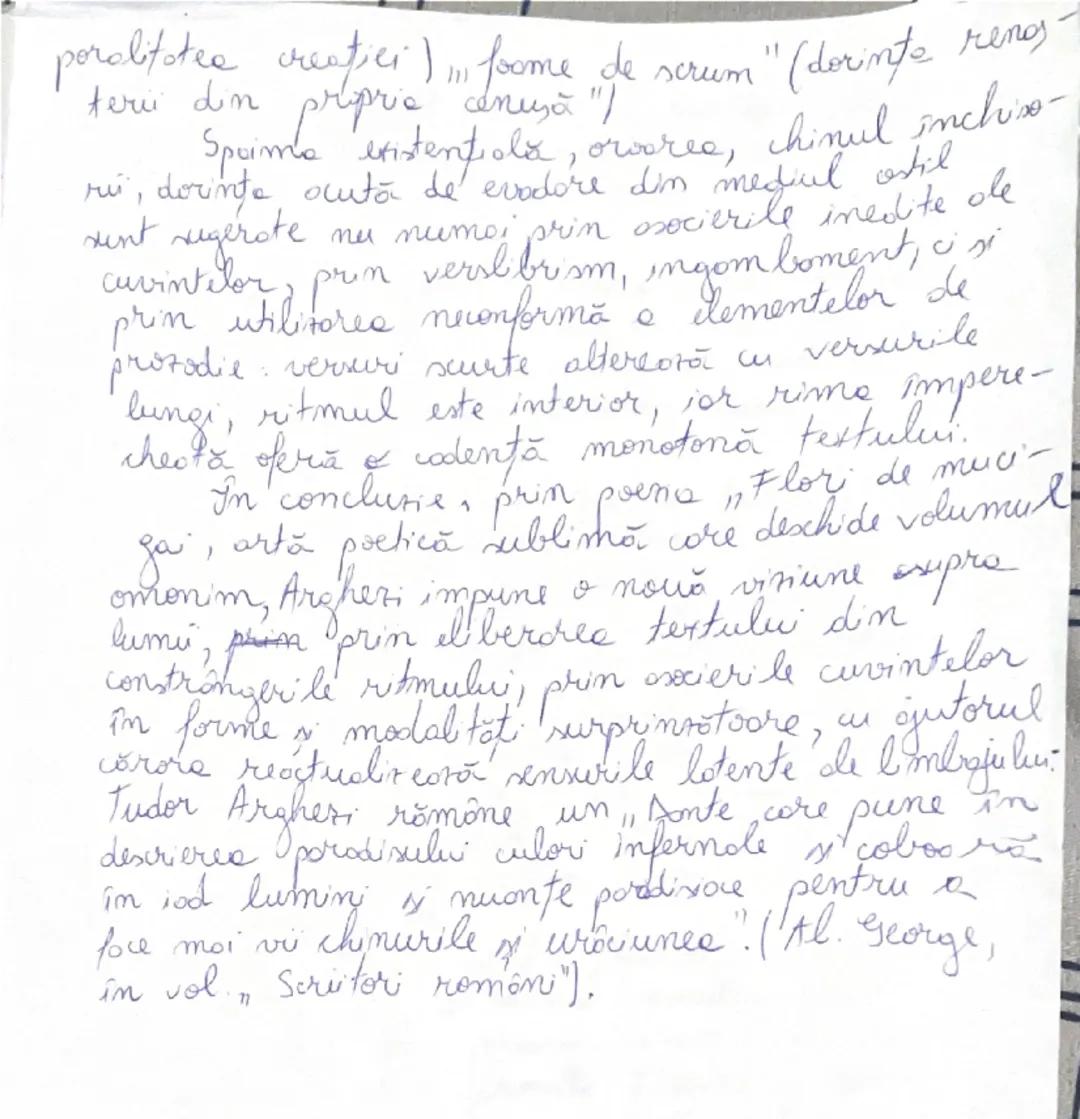 poralitatea creației) „, foame de scrum" (dorința renaș-
terii din propria cenușă")
Spaima existențială, oroarea, chinul închiso-
rii, dorința acută de evadare din mediul ostil
sunt sugerate nu numai prin asocierile inedite ale
cuvintelor, prin verslibrism, ingambament, ci și
prin utilizarea neconformă a elementelor de
prozodie: versuri scurte alterează cu versurile
lungi, ritmul este interior, iar rima împere-
cheată oferă o cadență monotonă textului.
În concluzie, prin poezia „Flori de muci-
gai, artă poetică sublimă care deschide volumul
omonim, Arghezi impune o nouă viziune asupra
lumii, prin prin eliberarea textului din
constrângerile ritmului, prin asocierile cuvintelor
în forme și modalități surprinzătoare, cu ajutorul
cărora reactualizează sensurile latente ale limbajului.
Tudor Arghezi rămâne un „Dante care pune în
descrierea paradisului culori infernale și coboară
în iad lumini și nuanțe paradisiace pentru a
face mai vii chinurile și urâciunea". (Al. George,
în vol. „Scriitori români").